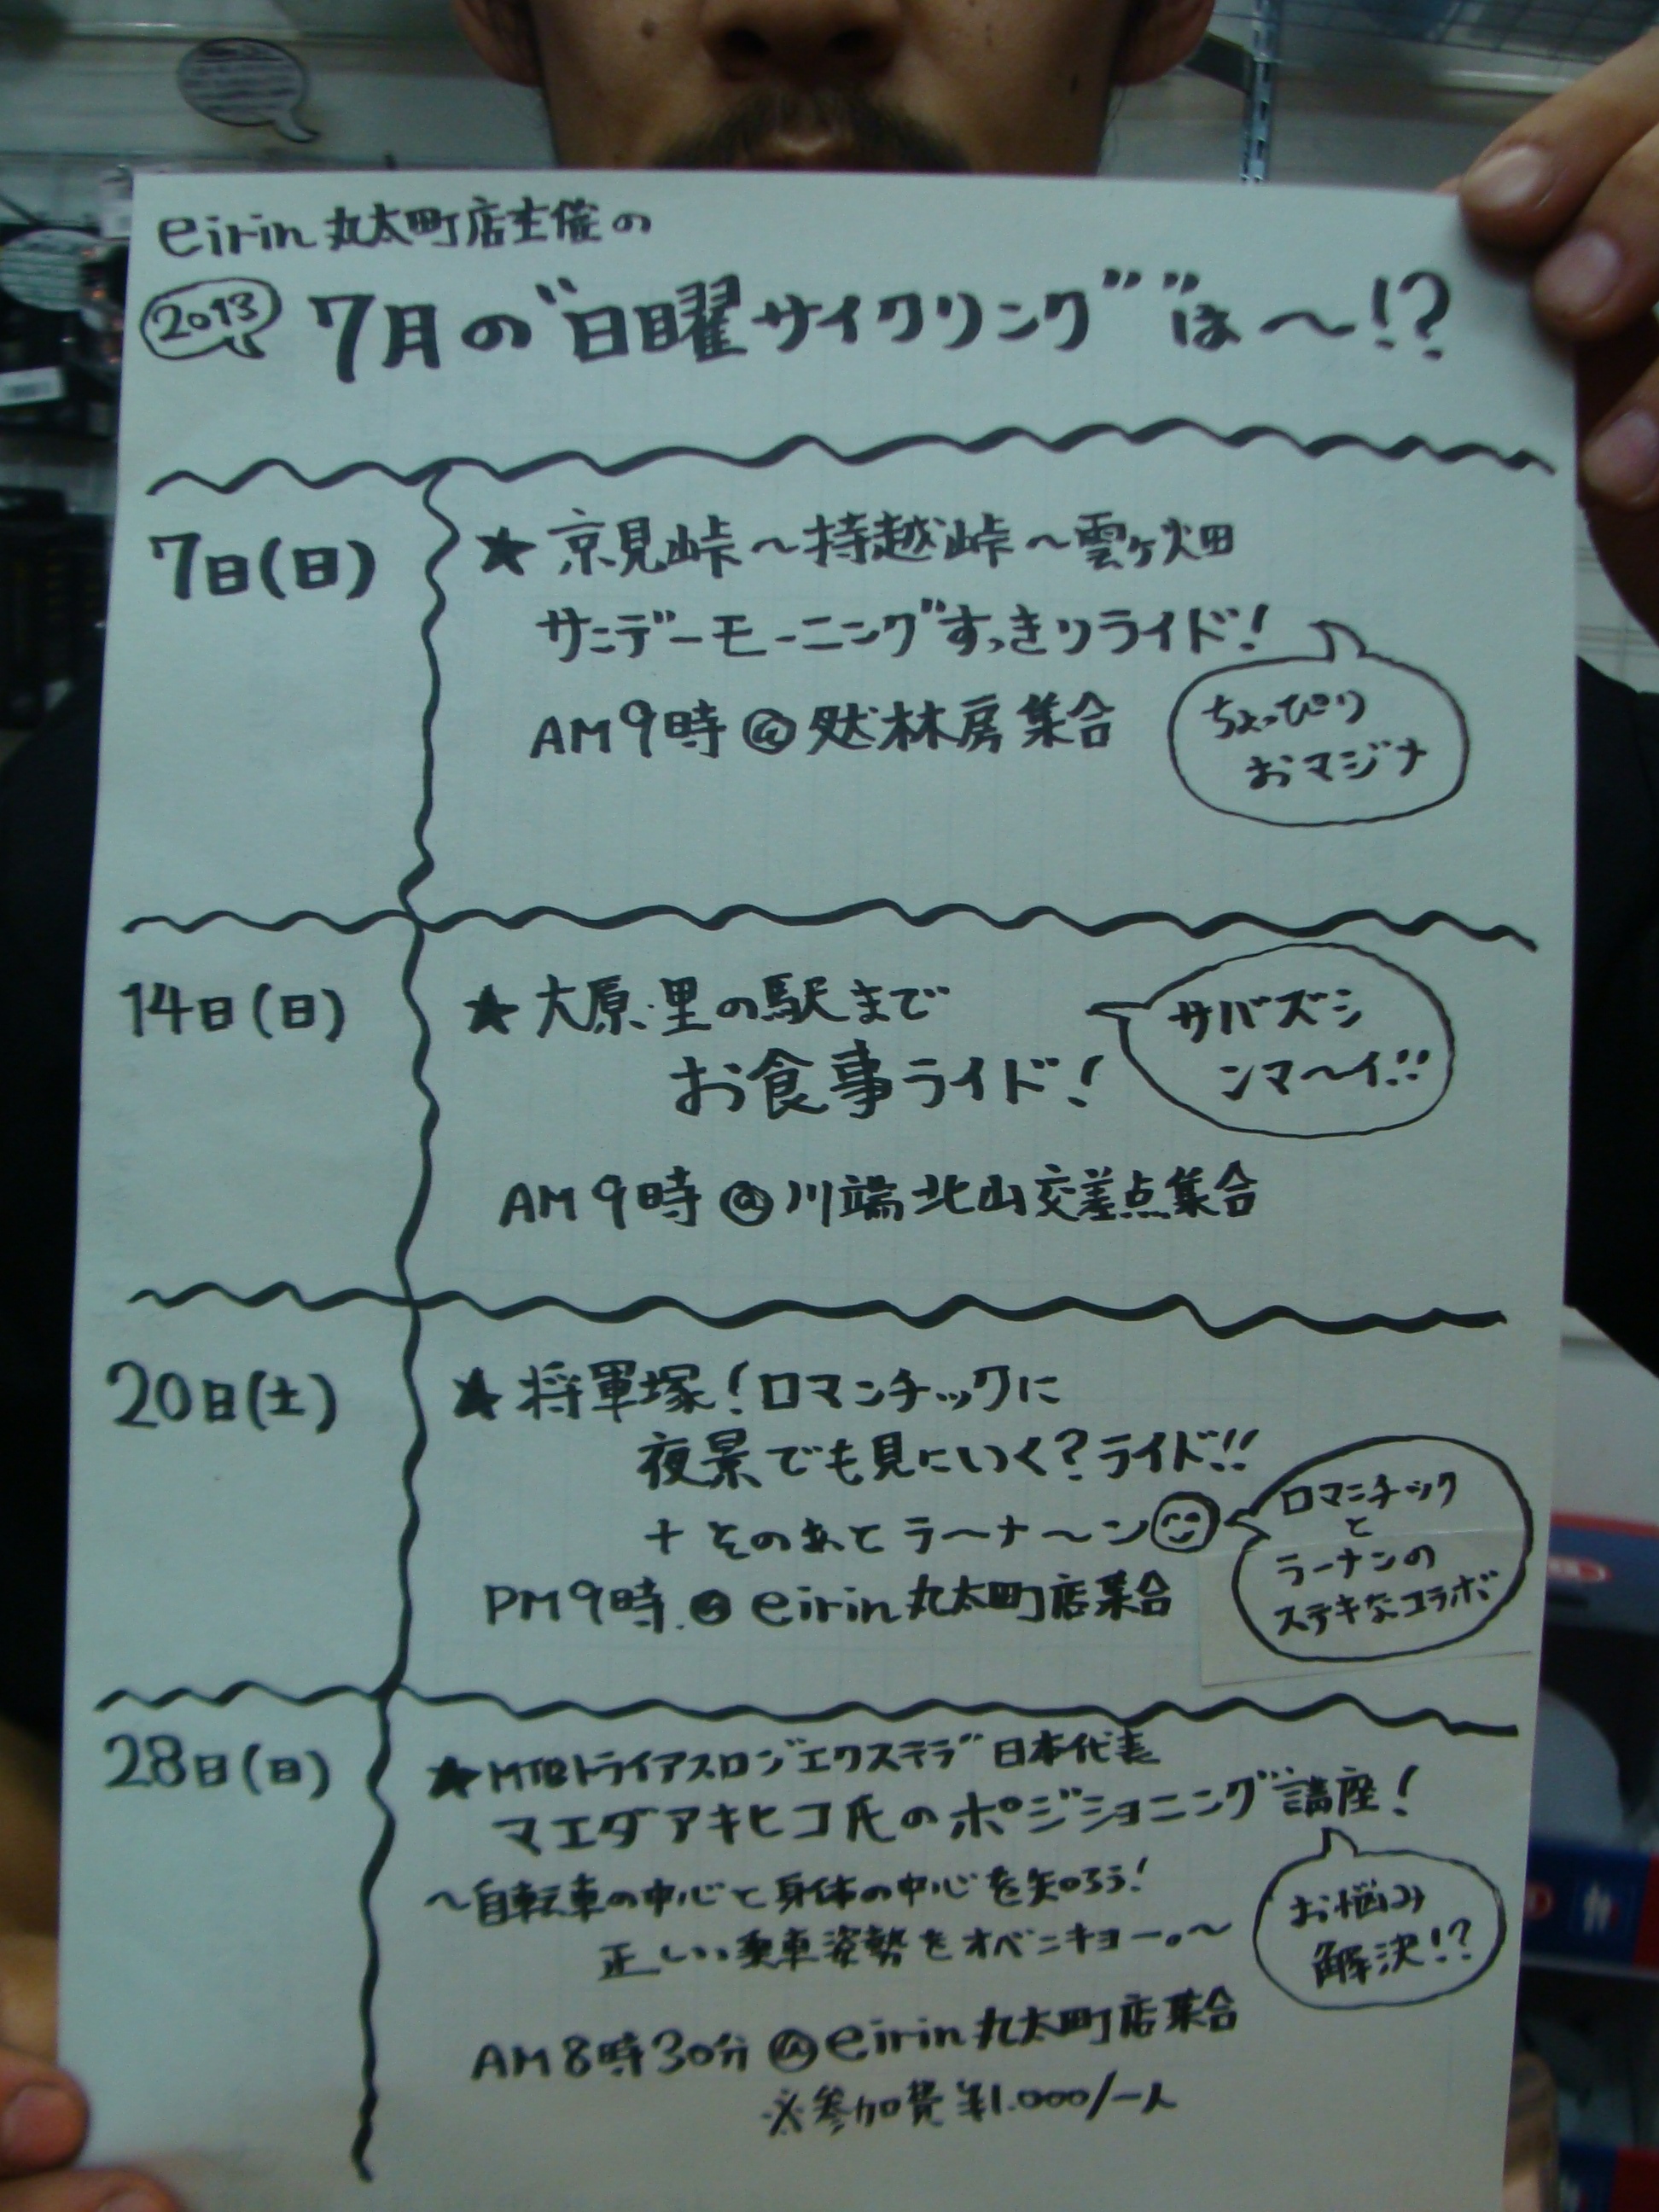 eirin丸太町店主催の
2013 7月の"日曜サイクリング"は〜!?
7日(日)
★京見峠〜持越峠〜雲ヶ畑
サンデーモーニングすっきりライド!
AM9時@然林房集合
ちょっぴり
おマジナ
14日(日)
★大原・里の駅まで
お食事ライド!
サバズシ
ンマ〜イ!!
AM9時@川端北山交差点集合
20日(土)
★将軍塚!ロマンチックに
夜景でも見にいく?ライド!!
+そのあとラ〜ナ〜ン
ロマンチック
と
ラーナンの
ステキなコラボ
PM9時.@eirin丸太町店集合
28日(日)
★MTBトライアスロン"エクステラ"日本代表
マエダアキヒコ氏のポジショニング講座!
〜自転車の中心と身体の中心を知ろう!
正しい乗車姿勢をオベンキョー。〜
お悩み
解決!?
AM8時30分@eirin丸太町店集合
※参加費¥1.000/一人